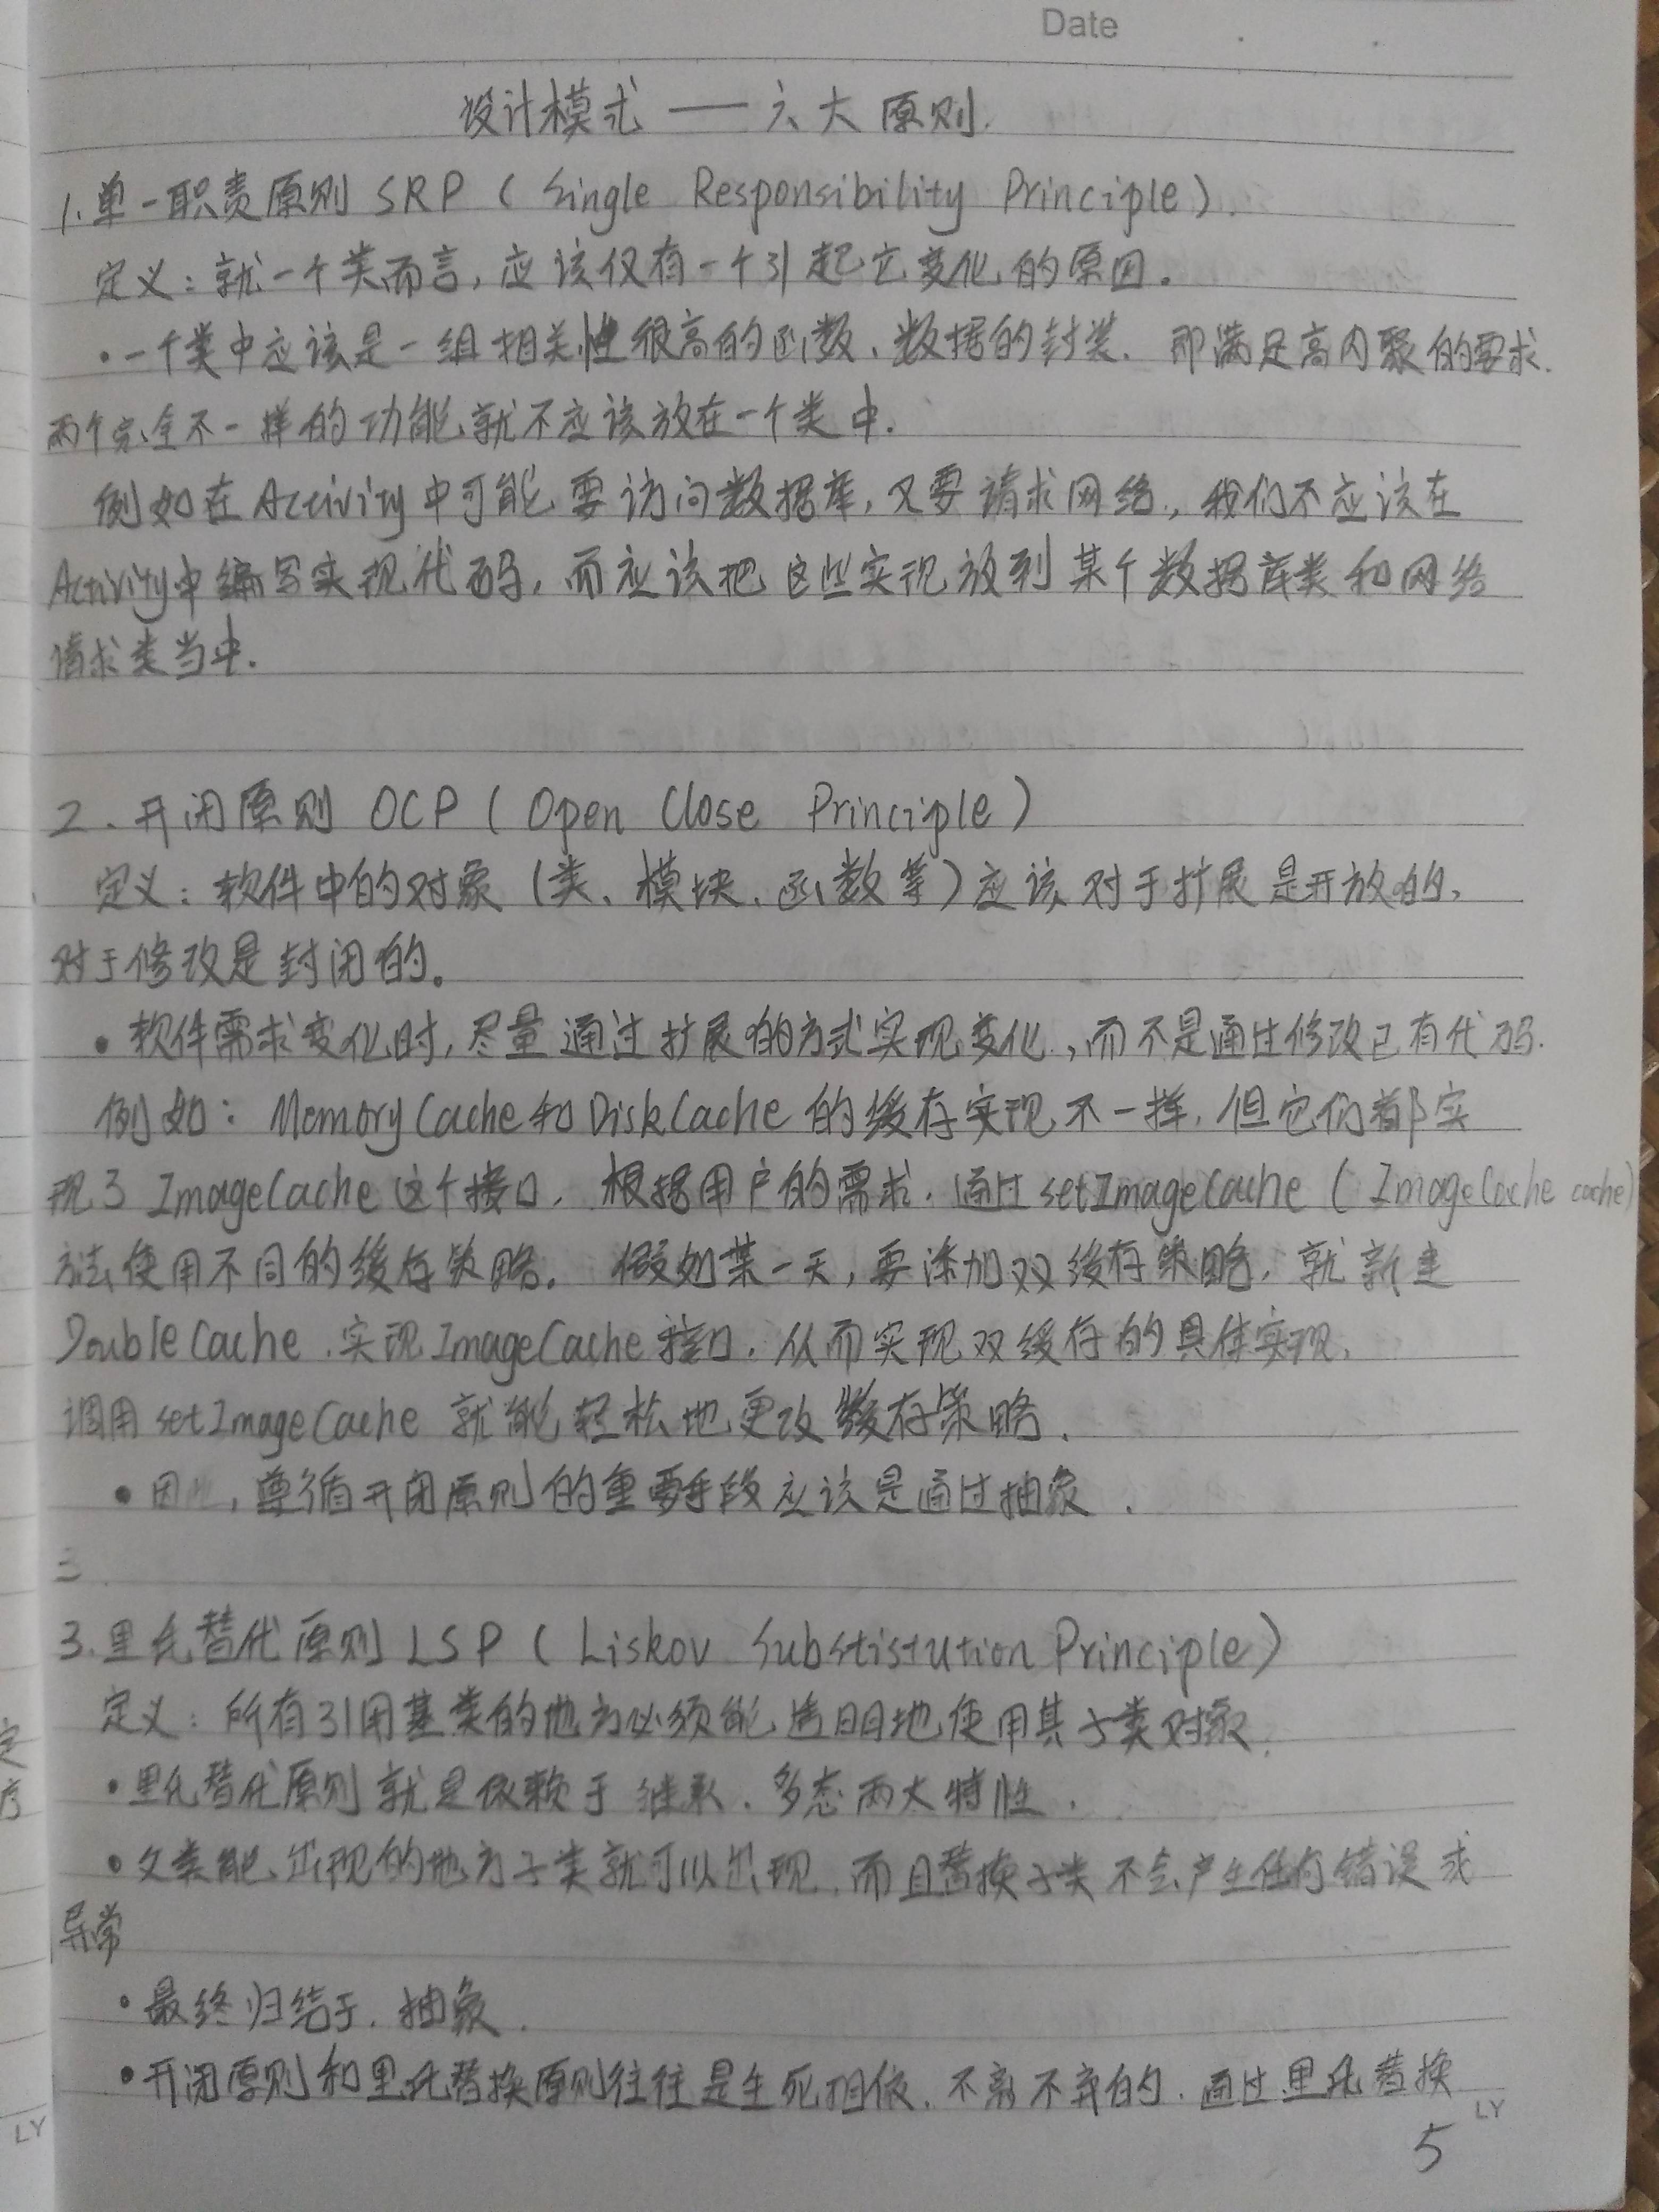 Date
设计模式 —— 六大原则.
1.单一职责原则 SRP ( Single Responsibility Principle ).
定义：就一个类而言，应该仅有一个引起它变化的原因。
·一个类中应该是一组相关性很高的函数、数据的封装. 即满足高内聚的要求.
两个完全不一样的功能就不应该放在一个类中.
例如在Activity中可能要访问数据库，又要请求网络，我们不应该在
Activity中编写实现代码，而应该把这些实现放到某个数据库类和网络
请求类当中.
2、开闭原则 OCP ( Open Close Principle )
定义：软件中的对象（类、模块、函数等）应该对于扩展是开放的，
对于修改是封闭的。
·软件需求变化时，尽量通过扩展的方式实现变化，而不是通过修改已有代码.
例如：MemoryCache和DiskCache的缓存实现不一样，但它们都实
现了ImageCache这个接口，根据用户的需求，通过setImageCache ( ImageCache cache)
方法使用不同的缓存策略。假如某一天，要添加双缓存策略，就新建
DoubleCache，实现ImageCache接口，从而实现双缓存的具体实现，
调用setImageCache 就能轻松地更改缓存策略.
·因此，遵循开闭原则的重要手段应该是通过抽象.
三
3.里氏替代原则 LSP ( Liskov Substistution Principle )
定义：所有引用基类的地方必须能透明地使用其子类对象.
·里氏替代原则就是依赖于继承、多态两大特性.
·父类能出现的地方子类就可以出现，而且替换子类不会产生任何错误或
异常
·最终归结于，抽象.
·开闭原则和里氏替换原则往往是生死相依、不离不弃的，通过里氏替换
LY
LY
5
定
序